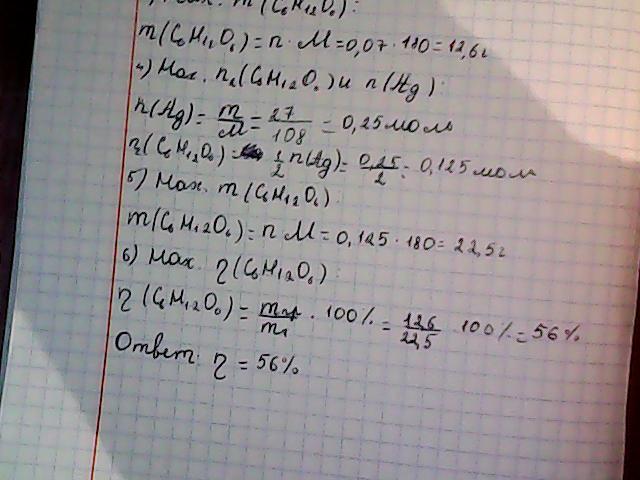 m(C6H12O6):
m(C6H12O6) = n · M = 0,07 · 180 = 12,6г
4) Нах. n2(C6H12O6) и n(Ag):
n(Ag) = m/M = 27/108 = 0,25 моль
n2(C6H12O6) = 1/2 n(Ag) = 0,25/2 = 0,125 моль
5) Нах. m(C6H12O6):
m(C6H12O6) = n · M = 0,125 · 180 = 22,5г
6) Нах. η(C6H12O6):
η(C6H12O6) = · 100% = 12,6/22,5 · 100% = 56%
Ответ: η = 56%